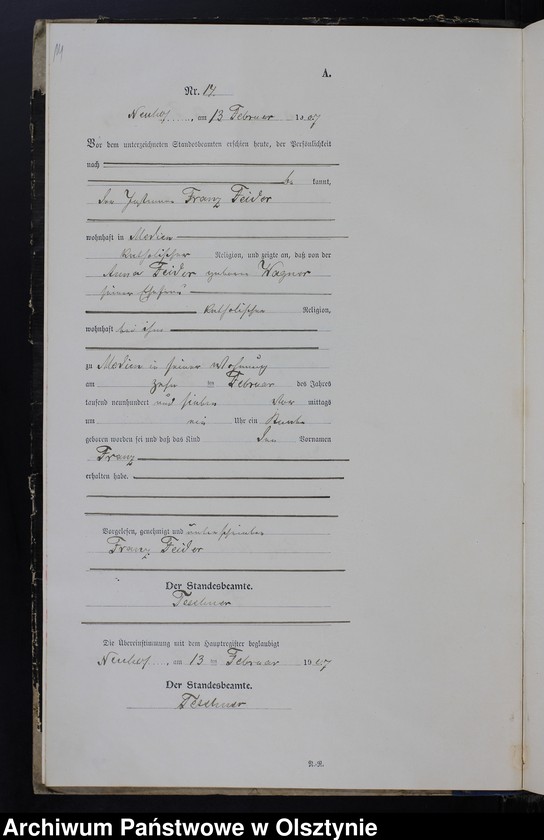 A.
Nr. 14.
Neuhof, am 13 Februar 1907
Vor dem unterzeichneten Standesbeamten erschien heute, der Persönlichkeit
nach
be kannt,
den Franz Feider
wohnhaft in
katholischer Religion, und zeigte an, daß von der
Anna Feider geborene Wagner
seiner Ehefrau
katholischer Religion,
wohnhaft bei ihm
zu in seiner Wohnung
am zehn ten Februar des Jahres
tausend neunhundert und sieben Vor mittags
um ein Uhr ein Knabe
geboren worden sei und daß das Kind den Vornamen
Franz
erhalten habe.
Vorgelesen, genehmigt und unterschrieben
Franz Feider
Der Standesbeamte.
Teschner
Die Übereinstimmung mit dem Hauptregister beglaubigt
Neuhof, am 13 ten Februar 1907
Der Standesbeamte.
Teschner
Archiwum Państwowe w Olsztynie